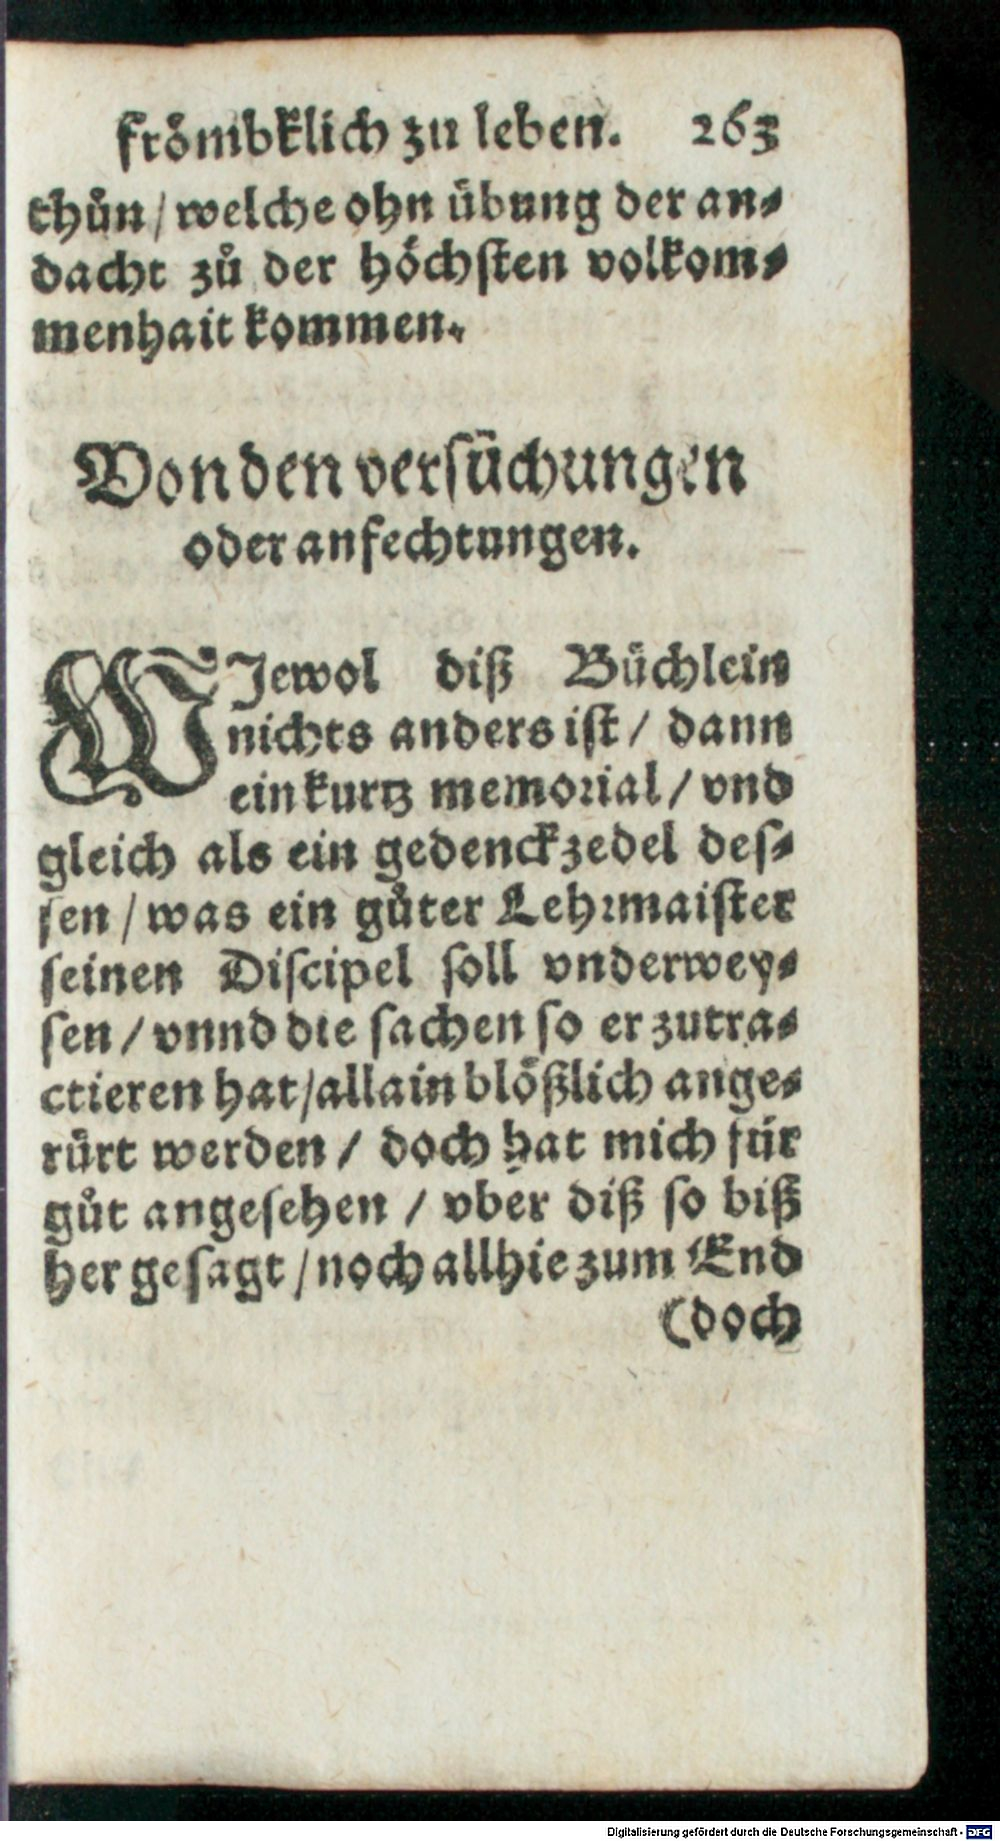 frömbklich zu leben. 263
thůn / welche ohn übung der an⸗
dacht zů der höchsten volkom⸗
menhait kommen.
Von den versůchungen
oder anfechtungen.
WJewol diß Büchlein
nichts anders ist / dann
ein kurtz memorial / vnd
gleich als ein gedenckzedel des⸗
sen / was ein gůter Lehrmaister
seinen Discipel soll vnderwey⸗
sen / vnnd die sachen so er zutra⸗
ctieren hat / allain blößlich ange⸗
rürt werden / doch hat mich für
gůt angesehen / vber diß so biß
her gesagt / noch allhie zum End
(doch
Digitalisierung gefördert durch die Deutsche Forschungsgemeinschaft - DFG